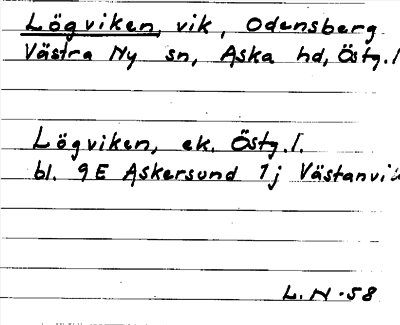 Lögviken, vik, Odensberg
Västra Ny sn, Aska hd, Östg.l
Lögviken, ek. Östg.l.
bl. 9E Askersund 1j Västanvik
L.N.58